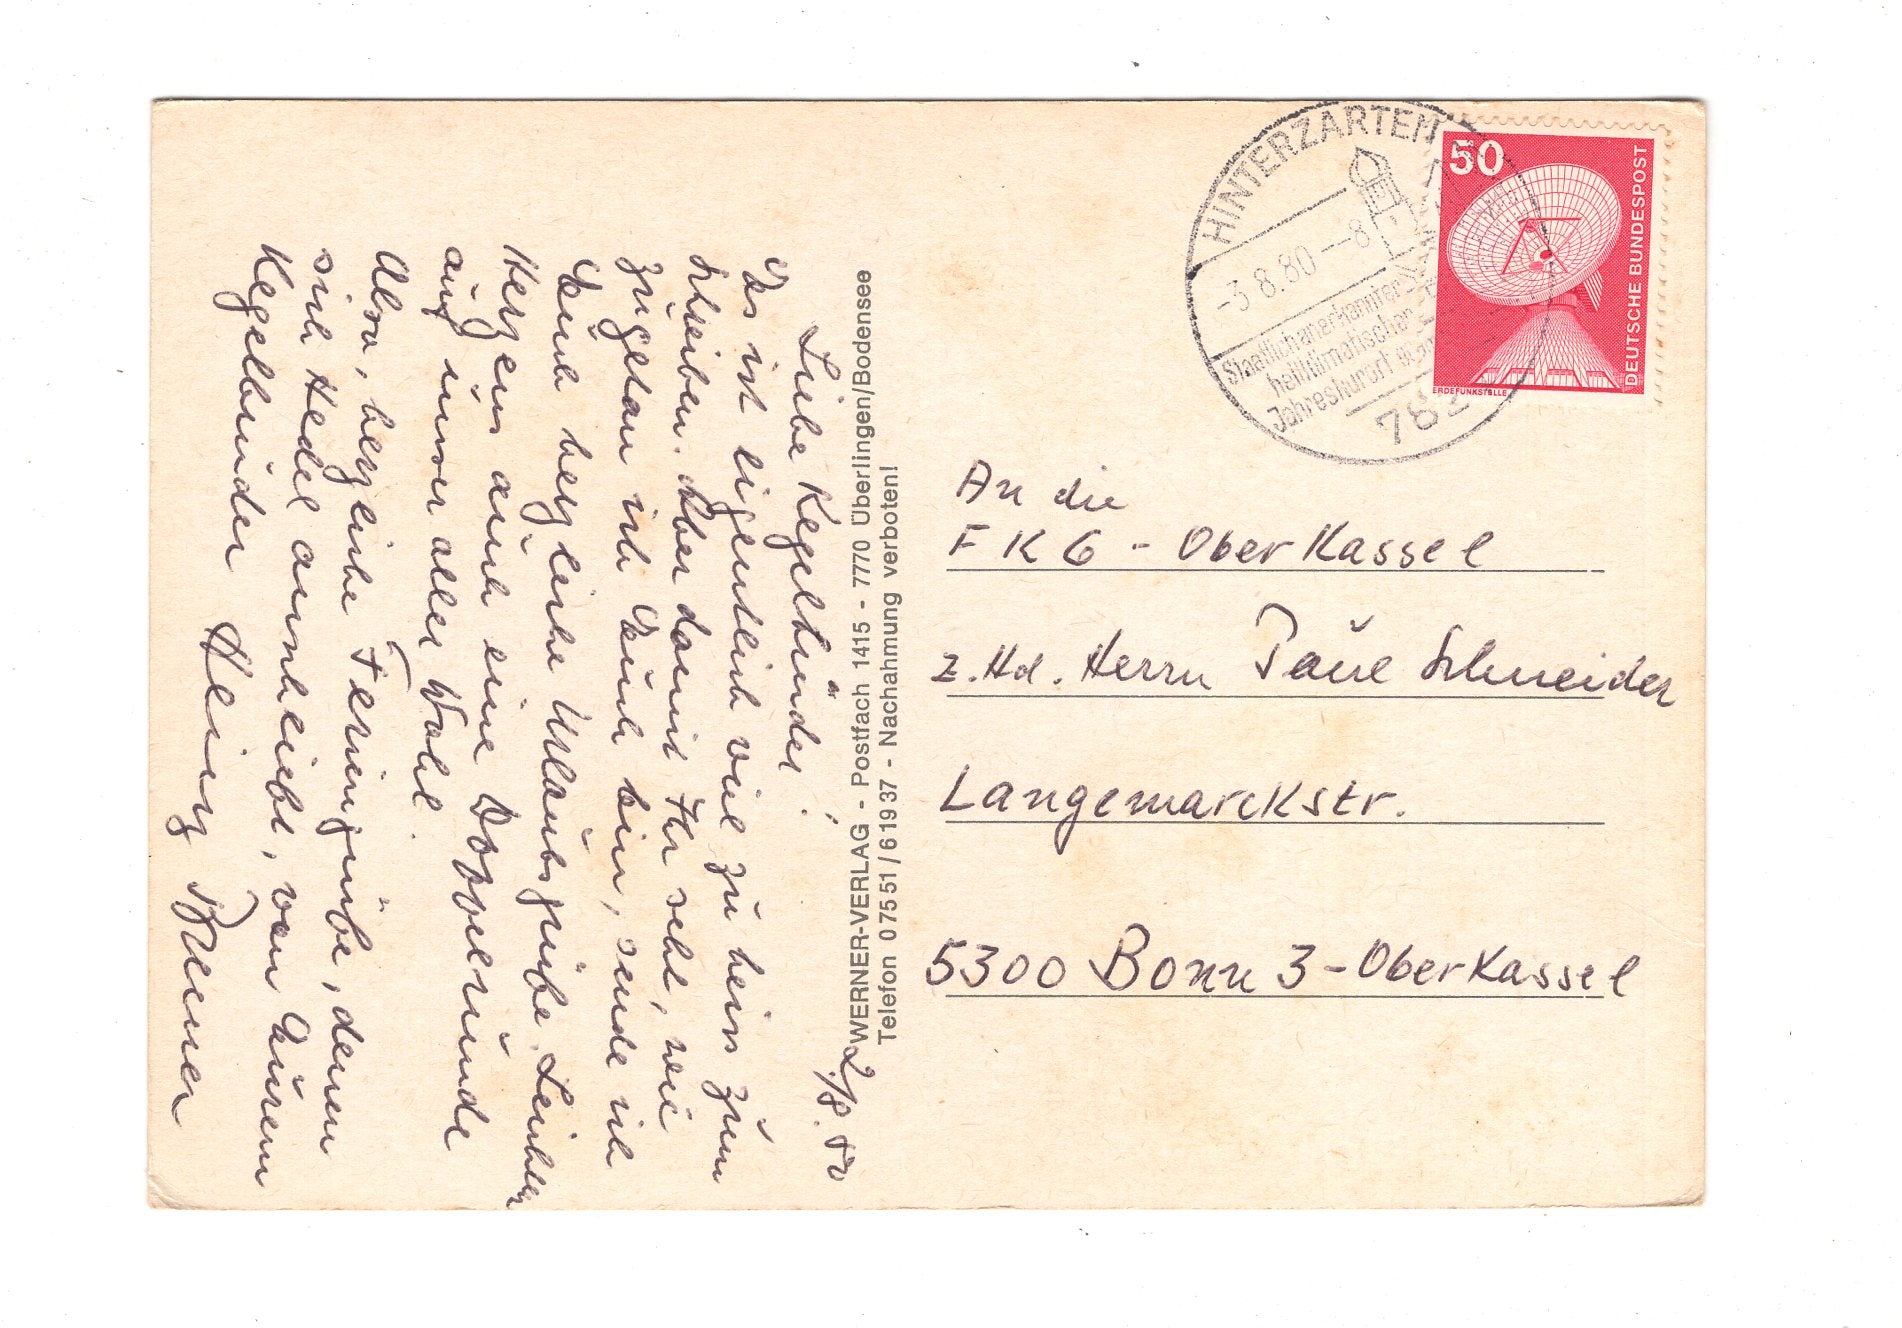 2./8. 80
Liebe Kegelbrüder!
Es ist eigentlich viel zu heiss zum
Schreiben. Aber damit Ihr seht, wie
zugetan ich Euch bin, sende ich
Euch herzliche Urlaubsgrüße. Leichten
Herzens auch eine Doppelrunde
auf unser aller Wohl.
Also, herzliche Feriengrüße, denen
sich Hedel anschließt, von Eurem
Kegelbruder Heinz Bremer
WERNER-VERLAG - Postfach 1415 - 7770 Überlingen/Bodensee
Telefon 07551/61937 - Nachahmung verboten!
HINTERZARTEN
-3.8.80--8
Staatlich anerkannter
heilklimatischer
Jahreskurort
782
50
DEUTSCHE BUNDESPOST
ERDEFUNKSTELLE
An die
FKG - Oberkassel
z.Hd. Herrn Paul Schneider
Langemarckstr.
5300 Bonn 3 - Oberkassel